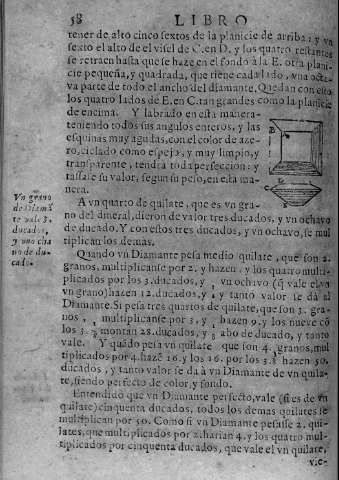 58 LIBRO
tener de alto cinco sextos de la planicie de arriba: y vn
sexto el alto de el visel de C. en D. y los quatro restantes
se retraen hasta que se haze en el fondo à la E. otra plani-
cie pequeña, y quadrada, que tiene cada lado, vna octa-
va parte de todo el ancho del diamante. Quedan con esto
los quatro lados de E. en C. tan grandes como la planicie
de encima. Y labrado en esta manera,
teniendo todos sus angulos enteros, y las
esquinas muy agudas, con el color de aze-
ro, ciclado como espejo, y muy limpio, y
transparente, tendrá toda perfeccion: y
tassase su valor, segun su peso, en esta ma-
nera.
Vn grano
de Diamã
te vale 3.
ducados,
y vno cha
vo de du-
cado.
A vn quarto de quilate, que es vn gra-
no del dineral, dieron de valor tres ducados, y vn ochavo
de ducado. Y con estos tres ducados, y vn ochavo, se mul
tiplican los demas.
Quando vn Diamante pesa medio quilate, que son 2.
granos, multiplicanse por 2. y hazen 4. y los quatro multi-
plicados por los 3. ducados, y vn ochavo (q̃ vale el vn
vn grano) hazen 12. ducados, y tanto valor se dá al
Diamante. Si pesa tres quartos de quilate, que son 3. gra-
nos, multiplicanse por 3. y hazen 9. y los nueve cõ
los 3. montan 28. ducados, y abo de ducado, y tanto
vale. Y quãdo pesa vn quilate, que son 4. granos, mul
tiplicados por 4. hazẽ 16. y los 16. por los 3. hazen 50.
ducados, y tanto valor se dá à vn Diamante de vn quila-
te, siendo perfecto de color, y fondo.
Entendido que vn Diamante perfecto, vale (si es de vn
quilate) cinquenta ducados, todos los demas quilates se
multiplican por 50. Como si vn Diamante pesasse 2. qui-
lates, que multiplicados por 2. harian 4. y los quatro mul-
tiplicados por cinquenta ducados, que vale el vn quilate,